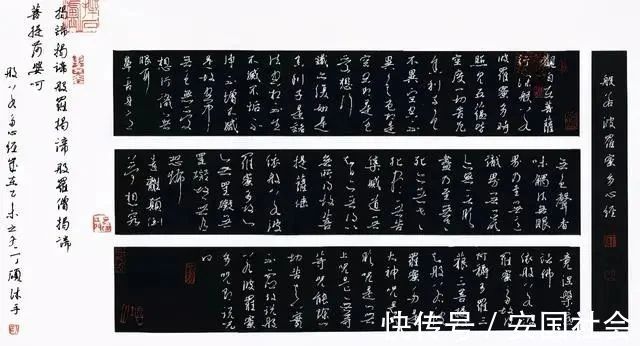 般若波羅蜜多心經
觀自在菩薩
行深般若
波羅蜜多時
照見五蘊皆
空度一切苦厄
舍利子色
不異空空不
異色色即是
空空即是色
受想行
識亦復如是
舍利子是諸
法空相不生
不滅不垢不
淨不增不減
是故空中
無色無受
想行識無
眼耳
鼻舌身意
無色聲香
味觸法無眼
界乃至無意
識界無無明
亦無無明
盡乃至無
老死亦無老
死盡無苦
集滅道無
智亦無得以
無所得故菩
提薩埵
依般若波
羅蜜多故
心無罣礙無
罣礙故無有
恐怖
遠離顛倒
夢想究
竟涅槃三世
諸佛
依般若波
羅蜜多故得
阿耨多羅三
藐三菩提
故知般若波
羅蜜多是
大神咒是
大明咒是無
上咒是無等
等咒能除一
切苦真實
不虛故說般
若波羅蜜
多咒即說咒
曰
揭諦揭諦般羅揭諦般羅僧揭諦
菩提薩婆訶
般若多心經歲在乙未之冬丁碩沐手
快传号/安国社会